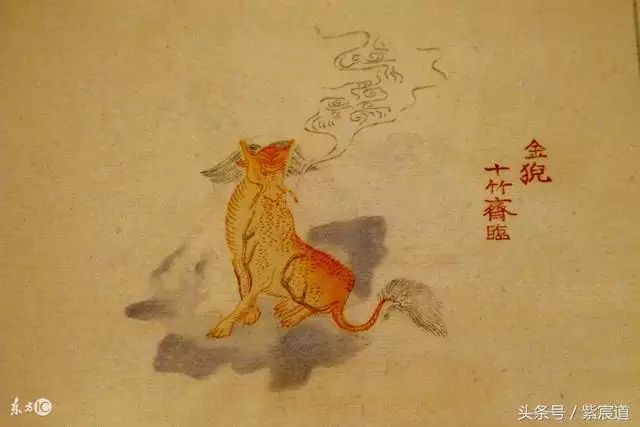 金猊
十竹齋臨
东方IC
头条号／紫宸道